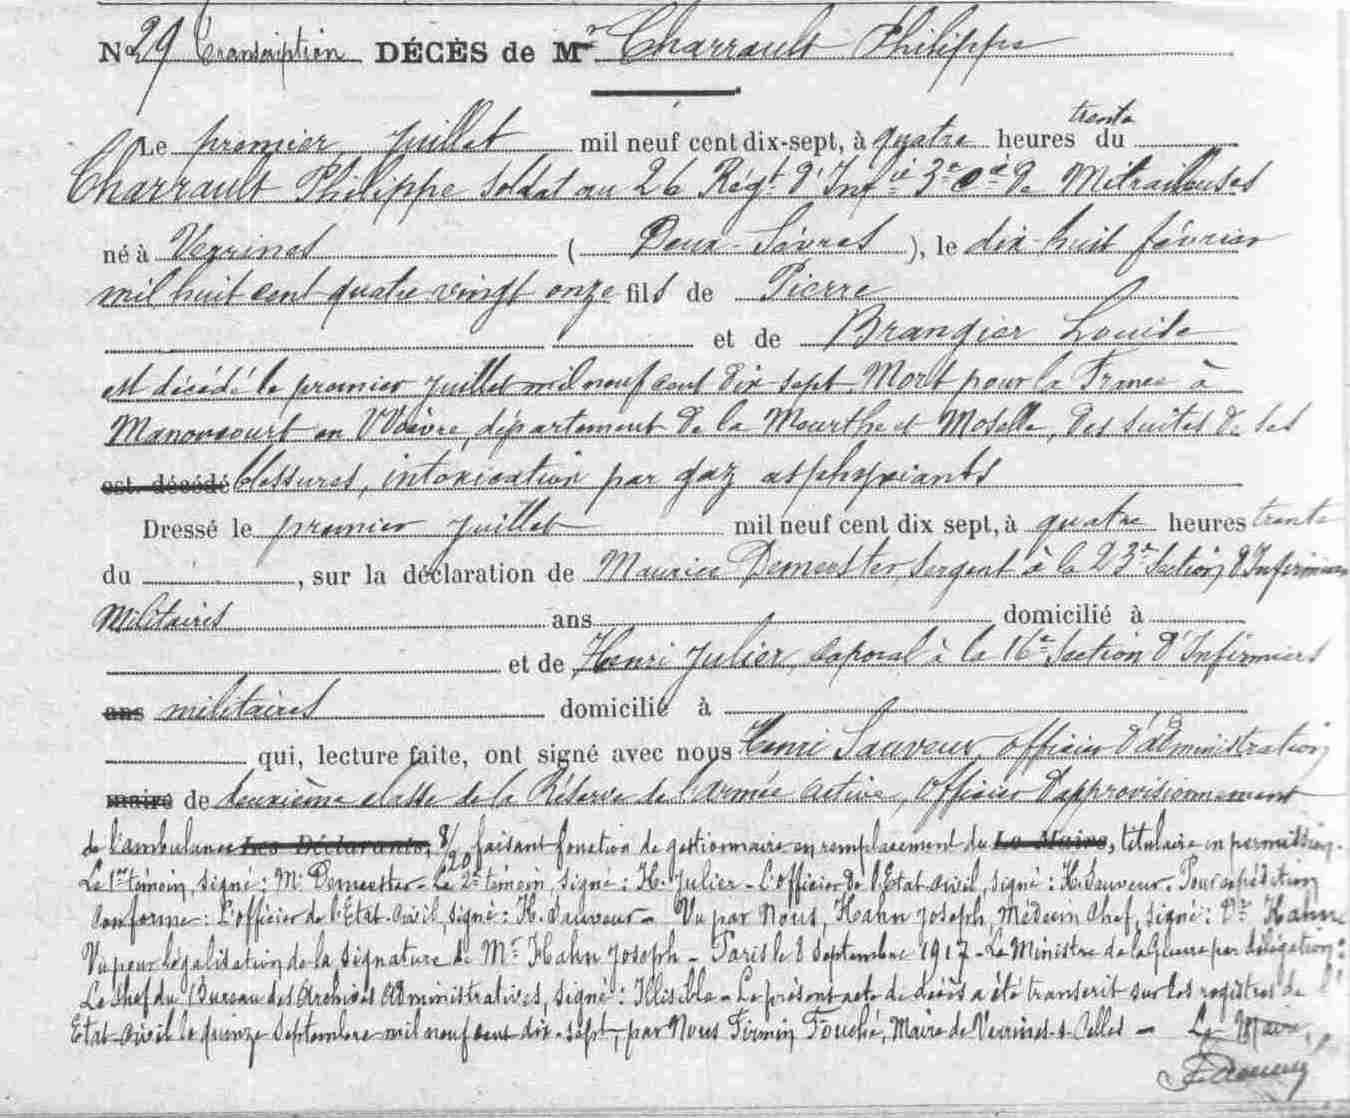 No 29 Transcription DÉCÈS de Mr Charrault Philippe
Le premier juillet mil neuf cent dix-sept, à quatre heures trente du
Charrault Philippe soldat au 26 Régt d'Infie 3e Cie de Mitrailleuses
né à Verrines ( Deux-Sèvres ), le dix huit février
mil huit cent quatre vingt onze fils de Pierre
et de Brangier Louise
est décédé le premier juillet mil neuf cent dix-sept Mort pour la France à
Manoncourt en Woëvre, département de la Meurthe et Moselle, des suites de ses
est décédé blessures, intoxication par gaz asphyxiants
Dressé le premier juillet mil neuf cent dix sept, à quatre heures trente
du , sur la déclaration de Maurice Demeester, sergent à la 23e Section d'Infirmiers
Militaires ans domicilié à
et de Henri Julier, caporal à la 16e Section d'Infirmiers
ans militaires domicilié à
qui, lecture faite, ont signé avec nous Henri Sauveur, officier d'administration
maire de deuxième classe de la Réserve de l'armée active, officier d'approvisionnement
de l'ambulance Les Déclarants, 8/20 faisant fonction de gestionnaire en remplacement du Le Maire, titulaire en permission.
Le 1er témoin, signé : M. Demeester - Le 2e témoin, signé : H. Julier - L'officier de l'Etat civil, signé : H. Sauveur. Pour expédition
conforme : L'officier de l'Etat-civil, signé : H. Sauveur - Vu par Nous, Hahn Joseph, Médecin Chef, signé : Dr Hahn
Vu pour légalisation de la signature de Mr Hahn Joseph - Paris le 8 septembre 1917 - Le Ministre de la Guerre par délégation :
Le chef du Bureau des Archives Administratives, signé : Illisible - Le présent acte de décès a été transcrit sur les registres de l'
Etat-civil le quinze septembre mil neuf cent dix-sept, par Nous Firmin Fouché, Maire de Verrines-s-Celles - Le Maire,